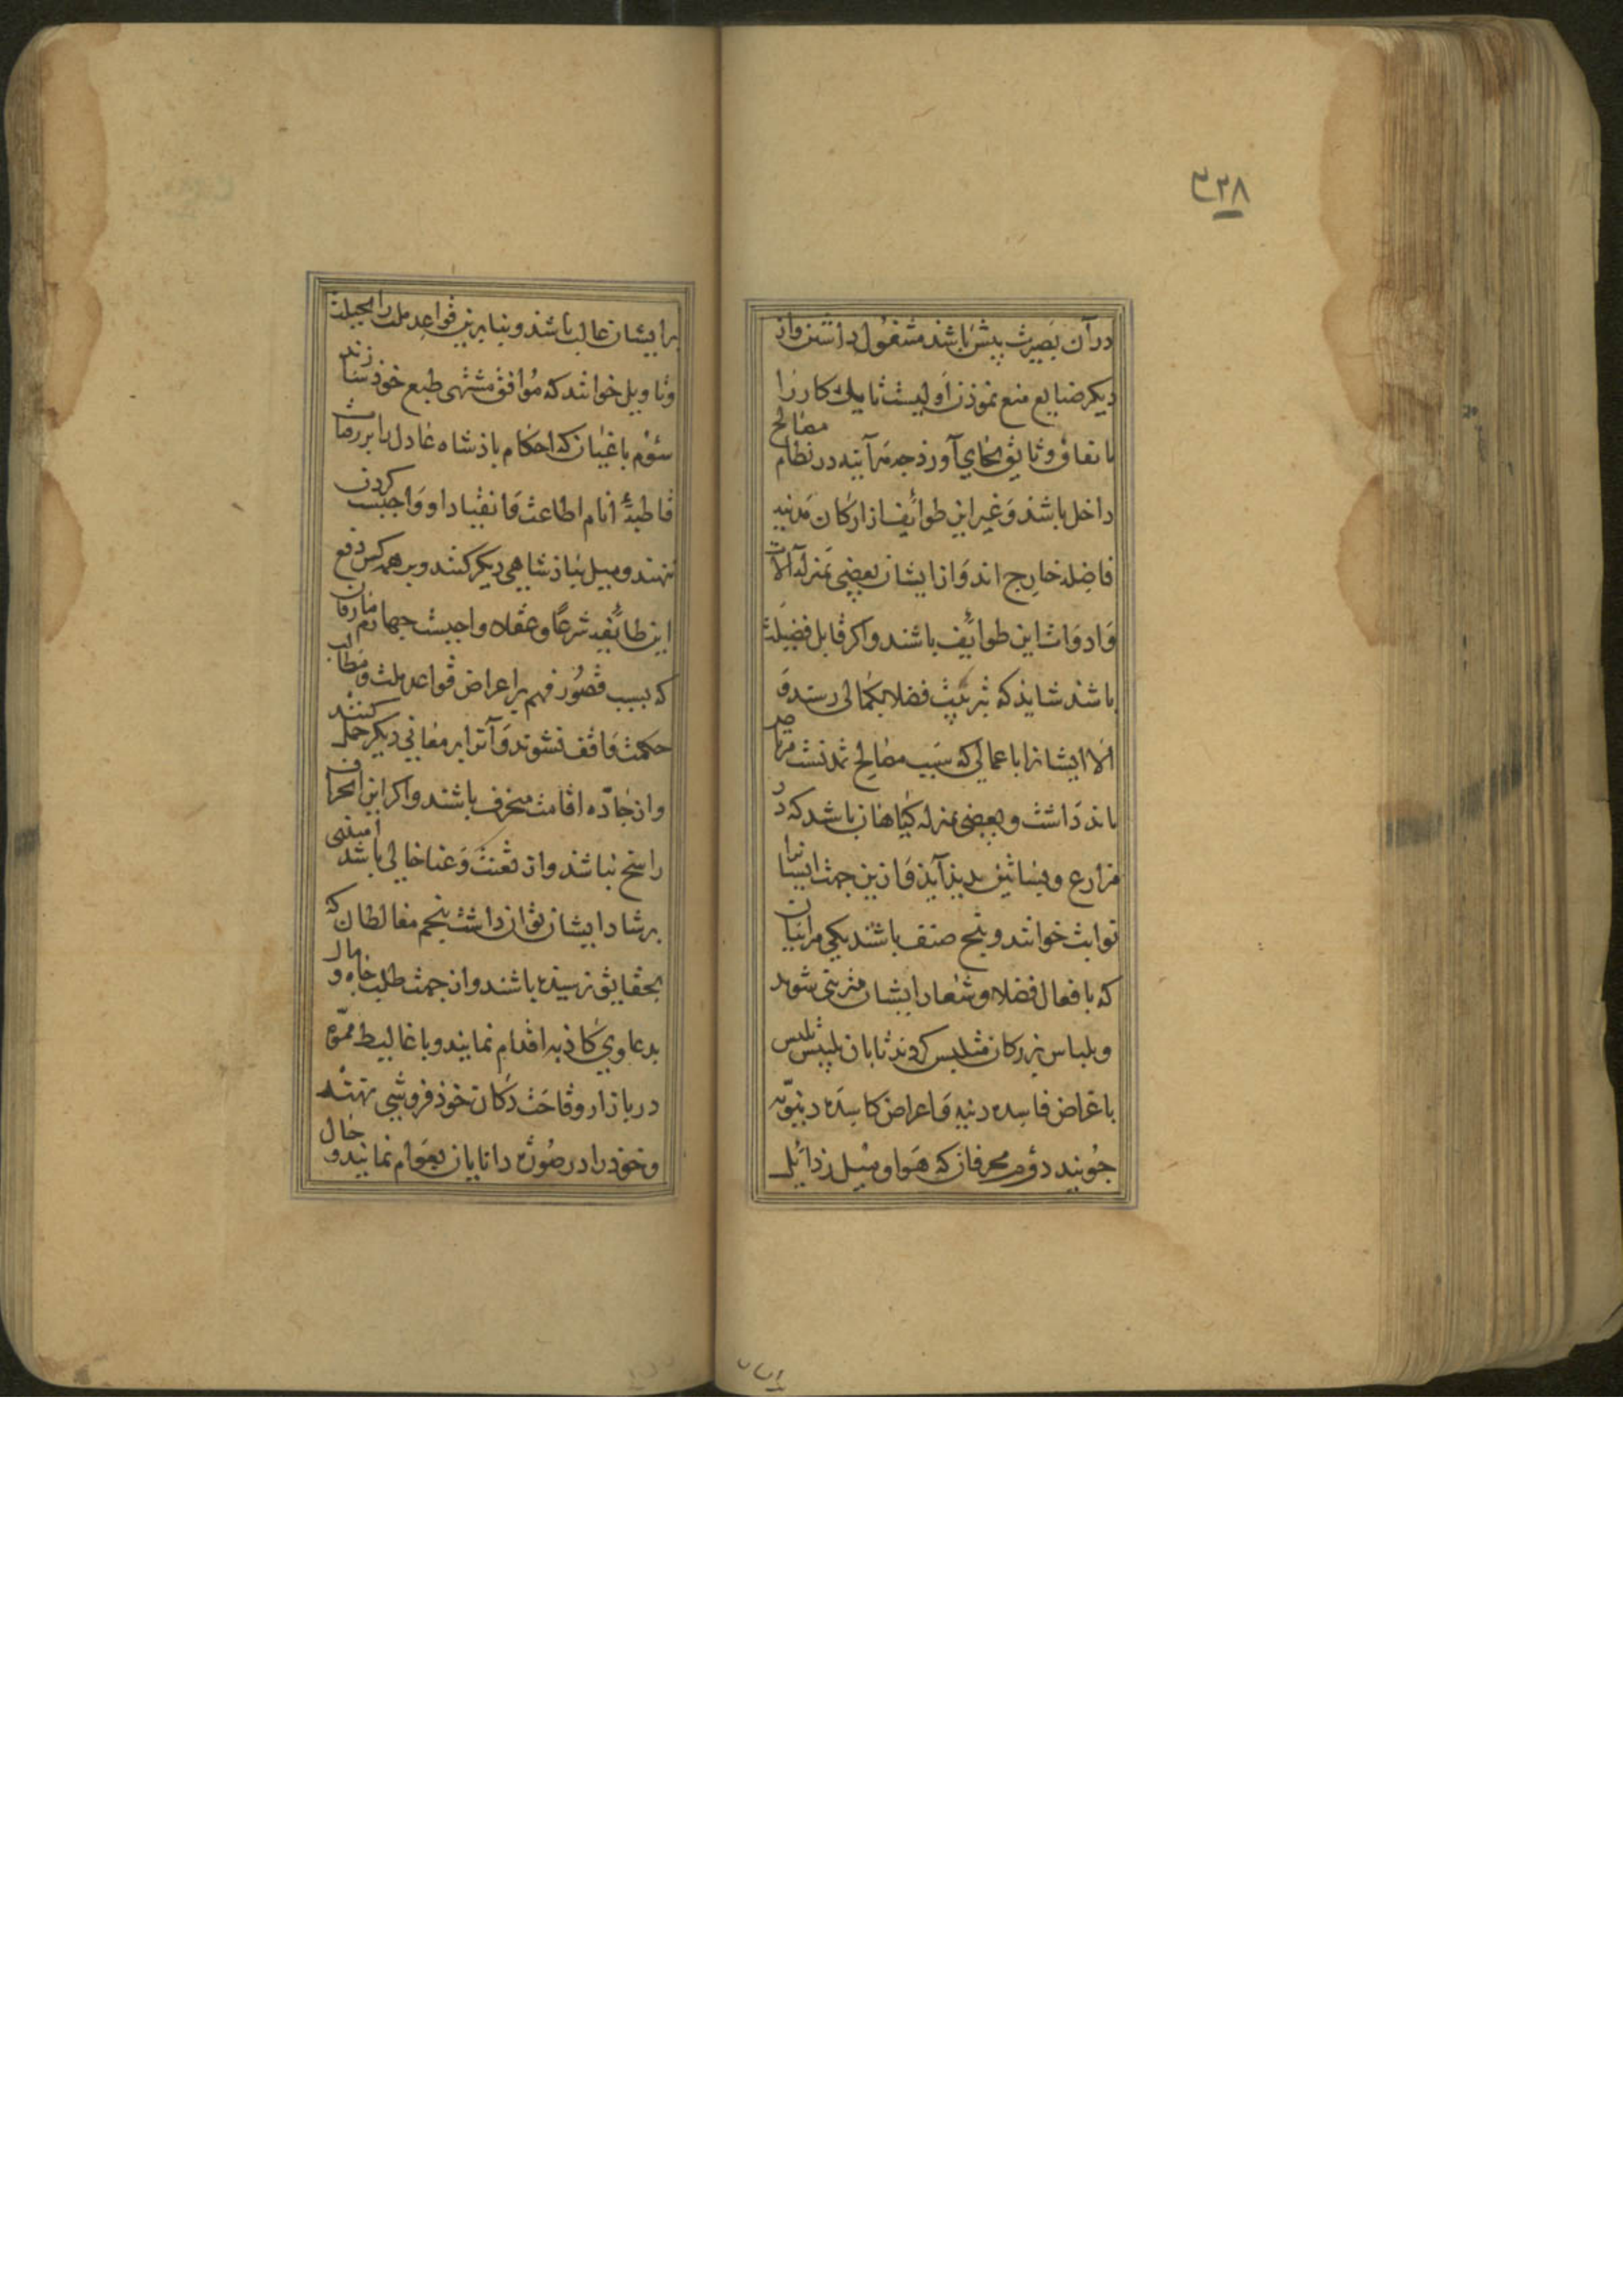 ۳۳۸
در آن بصیرت بیش باشد مشغول داشتن و از
دیکر صنایع منع نموذن اولیست تا یك کار را
باتفاق و تانق بجای آورذ جه مراتبه در نظام مصالح
داخل باشد و غیر این طوائف از ارکان مدنیه
فاضله خارج اند و از ایشان بعضی بمنزله آلات
و ادوات این طوایف باشند و اکر قابل فضیلت
باشند شایذ که بتربیت فضلا بکمالی رسند و
الا ایشانرا باعمالی که سبب مصالح تمدنست مرتاض
باذ داشت و بعضی بمنزله کیاهان باشد که در
مزارع و بساتین بدیذ آیذ و ازین جهت ایشانرا
نوابت خوانند و بنج صنف باشند یکی مرائیان
که بافعال فضلا و شعار ایشان متزیی شوند
و بلباس بزرکان متلبس کردند تا بان تلبیس تلبس
باغراض فاسده دنیه و اعراض کاسده دنیویه
جویند دوم محرفان که هوا و میل رذائل
بر ایشان غالب باشد و بنابرین قواعد ملت را بحیلت
و تاویل خوانند که موافق مشتهی طبع خود سازند
سوم باغیان که احکام باذشاه عادل را بر رقاب
قاطبهٔ انام اطاعت و انقیاد او واجبست کردن
ننهند و میل بباذشاهی دیکر کنند و بر همه کس دفع
این طائفه شرعا و عقلا واجبست جهارم مارقان
که بسبب قصور فهم بر اعراض قواعد ملت و مطالب
حکمت واقف نشوند و آنرا بر معانی دیکر حمل کنند
و از جادّه اقامت منحرف باشند و اکر این انحراف
راسخ نباشد و از تعنت و عنا خالی باشد امیدی
برشاد ایشان توان داشت بنجم مغالطان که
بحقایق نرسیده باشند و از جهت طلب جاه و مال
بدعاوی کاذبه اقدام نمایند و باغالیط مموّه
در بازار وقاحت دکان خوذ فروشی نهند
و خوذ را در صورة دانایان بعوام نمایند و حال